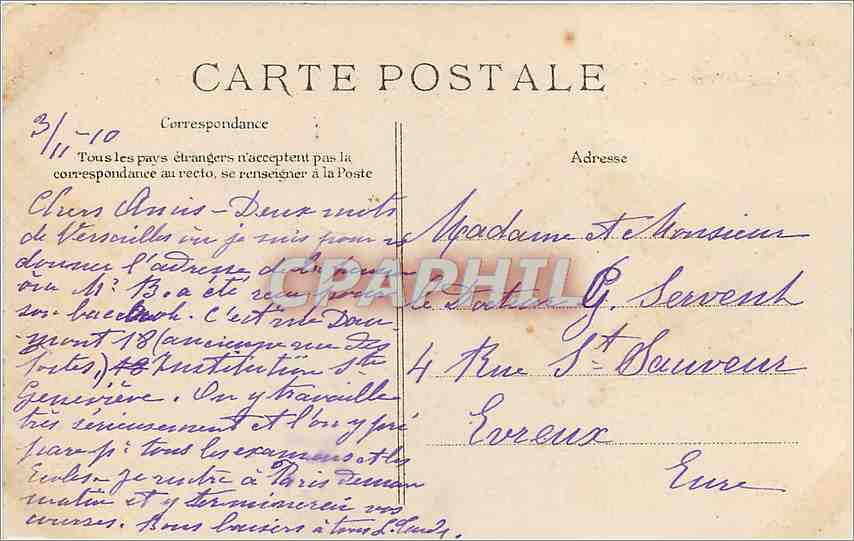 CARTE POSTALE
3/11-10
Correspondance
Tous les pays étrangers n'acceptent pas la
correspondance au recto, se renseigner à la Poste
Adresse
Chers Amis - Deux mots
de Versailles où je suis pour vs
donner l'adresse de la
où Mr B. a été reçu pour
son baccbach. C'est rue Dau-
-mont 18 (ancienne rue des
fortes,) 18 Institution Ste
Geneviève. On y travaille
très sérieusement et l'on y pré
pare pr tous les examens et les
Ecoles. Je rentre à Paris demain
matin et y terminerai vos
courses. Bons baisers à tous L.
Madame et Monsieur
le Docteur G. Servent
4 Rue St Sauveur
Evreux
Eure
CPAPHIL